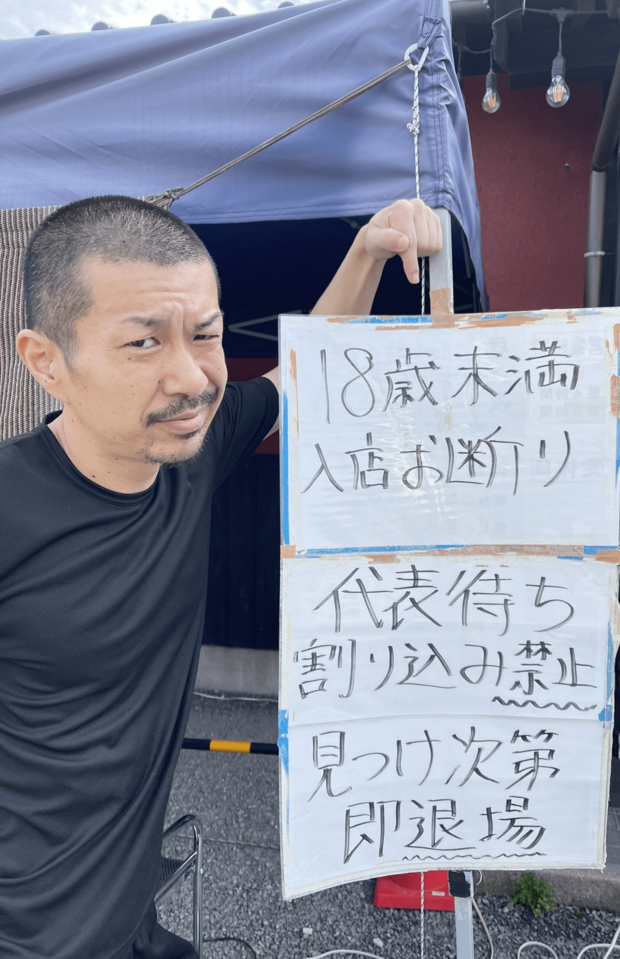 18歳末満
入店お断り
代表待ち
割り込み禁止
見つけ次第
即退場